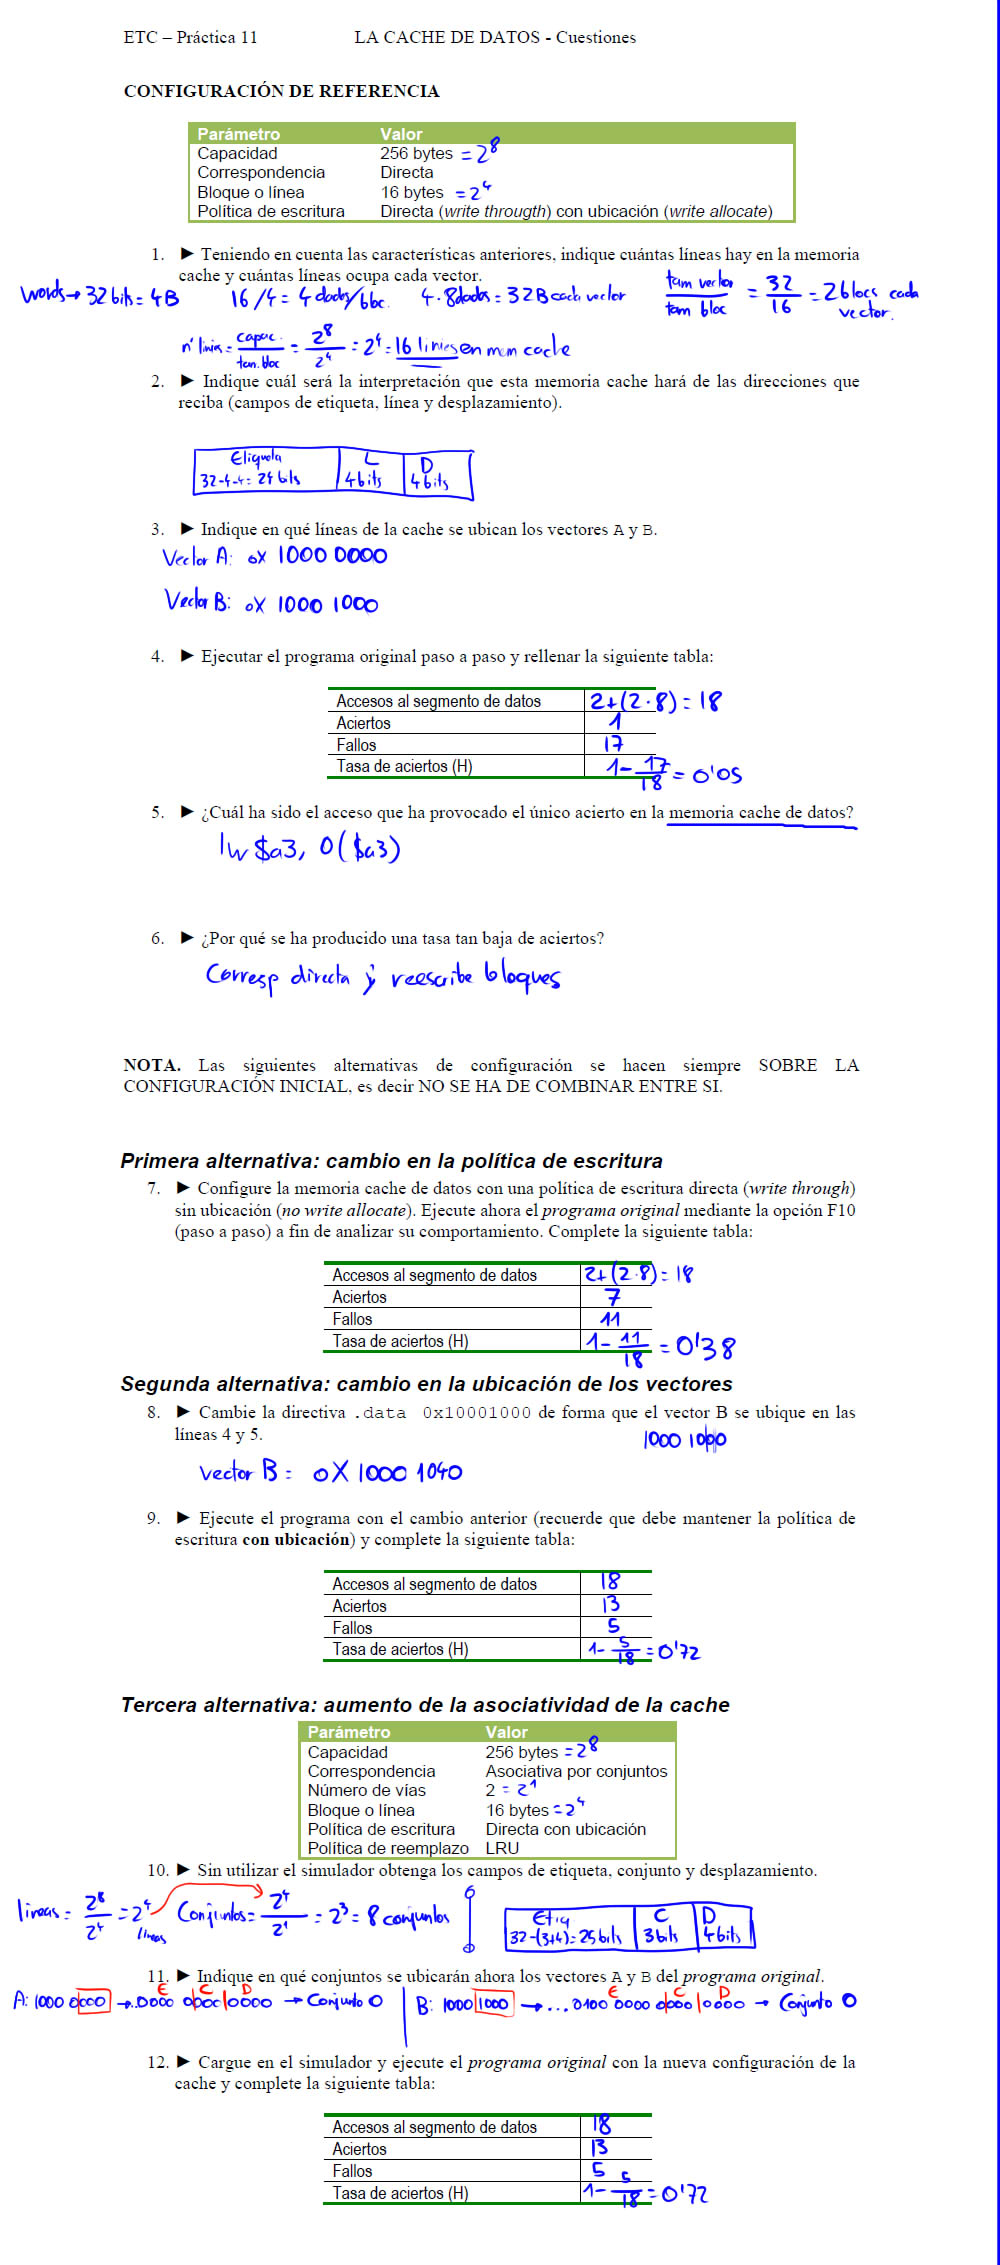 ETC – Práctica 11 LA CACHE DE DATOS - Cuestiones
CONFIGURACIÓN DE REFERENCIA
Parámetro Valor
Capacidad 256 bytes = 2^8
Correspondencia Directa
Bloque o línea 16 bytes = 2^4
Política de escritura Directa (write througth) con ubicación (write allocate)
1. ► Teniendo en cuenta las características anteriores, indique cuántas líneas hay en la memoria
cache y cuántas líneas ocupa cada vector.
words → 32 bits = 4B 16/4 = 4 dades/bloc. 4 · 8dades = 32B cada vector tam vector / tam bloc = 32/16 = 2 blocs cada vector.
nº linies = capac. / tam. bloc = 2^8 / 2^4 = 2^4 = 16 linies en mem cache
2. ► Indique cuál será la interpretación que esta memoria cache hará de las direcciones que
reciba (campos de etiqueta, línea y desplazamiento).
Etiqueta L D
32-4-4= 24 bits 4 bits 4 bits
3. ► Indique en qué líneas de la cache se ubican los vectores A y B.
Vector A: 0x 1000 0000
Vector B: 0x 1000 1000
4. ► Ejecutar el programa original paso a paso y rellenar la siguiente tabla:
Accesos al segmento de datos 2+(2·8) = 18
Aciertos 1
Fallos 17
Tasa de aciertos (H) 1 - 17/18 = 0'05
5. ► ¿Cuál ha sido el acceso que ha provocado el único acierto en la memoria cache de datos?
lw $a3, 0($a3)
6. ► ¿Por qué se ha producido una tasa tan baja de aciertos?
Corresp directa y reescribe bloques
NOTA. Las siguientes alternativas de configuración se hacen siempre SOBRE LA
CONFIGURACIÓN INICIAL, es decir NO SE HA DE COMBINAR ENTRE SI.
Primera alternativa: cambio en la política de escritura
7. ► Configure la memoria cache de datos con una política de escritura directa (write through)
sin ubicación (no write allocate). Ejecute ahora el programa original mediante la opción F10
(paso a paso) a fin de analizar su comportamiento. Complete la siguiente tabla:
Accesos al segmento de datos 2+(2·8) = 18
Aciertos 7
Fallos 11
Tasa de aciertos (H) 1 - 11/18 = 0'38
Segunda alternativa: cambio en la ubicación de los vectores
8. ► Cambie la directiva .data 0x10001000 de forma que el vector B se ubique en las
líneas 4 y 5.
1000 1000
vector B = 0X 1000 1040
9. ► Ejecute el programa con el cambio anterior (recuerde que debe mantener la política de
escritura con ubicación) y complete la siguiente tabla:
Accesos al segmento de datos 18
Aciertos 13
Fallos 5
Tasa de aciertos (H) 1 - 5/18 = 0'72
Tercera alternativa: aumento de la asociatividad de la cache
Parámetro Valor
Capacidad 256 bytes = 2^8
Correspondencia Asociativa por conjuntos
Número de vías 2 = 2^1
Bloque o línea 16 bytes = 2^4
Política de escritura Directa con ubicación
Política de reemplazo LRU
10. ► Sin utilizar el simulador obtenga los campos de etiqueta, conjunto y desplazamiento.
lineas = 2^8 / 2^4 = 2^4 lineas Conjuntos = 2^4 / 2^1 = 2^3 = 8 conjuntos
Etiq C D
32-(3+4)= 25 bits 3 bits 4 bits
11. ► Indique en qué conjuntos se ubicarán ahora los vectores A y B del programa original.
E C D E C D
A: 1000 0000 → ..0000 0|000|0000 → Conjunto 0 B: 1000 1000 → ...0100 0000 0|000|0000 → Conjunto 0
12. ► Cargue en el simulador y ejecute el programa original con la nueva configuración de la
cache y complete la siguiente tabla:
Accesos al segmento de datos 18
Aciertos 13
Fallos 5
Tasa de aciertos (H) 1 - 5/18 = 0'72